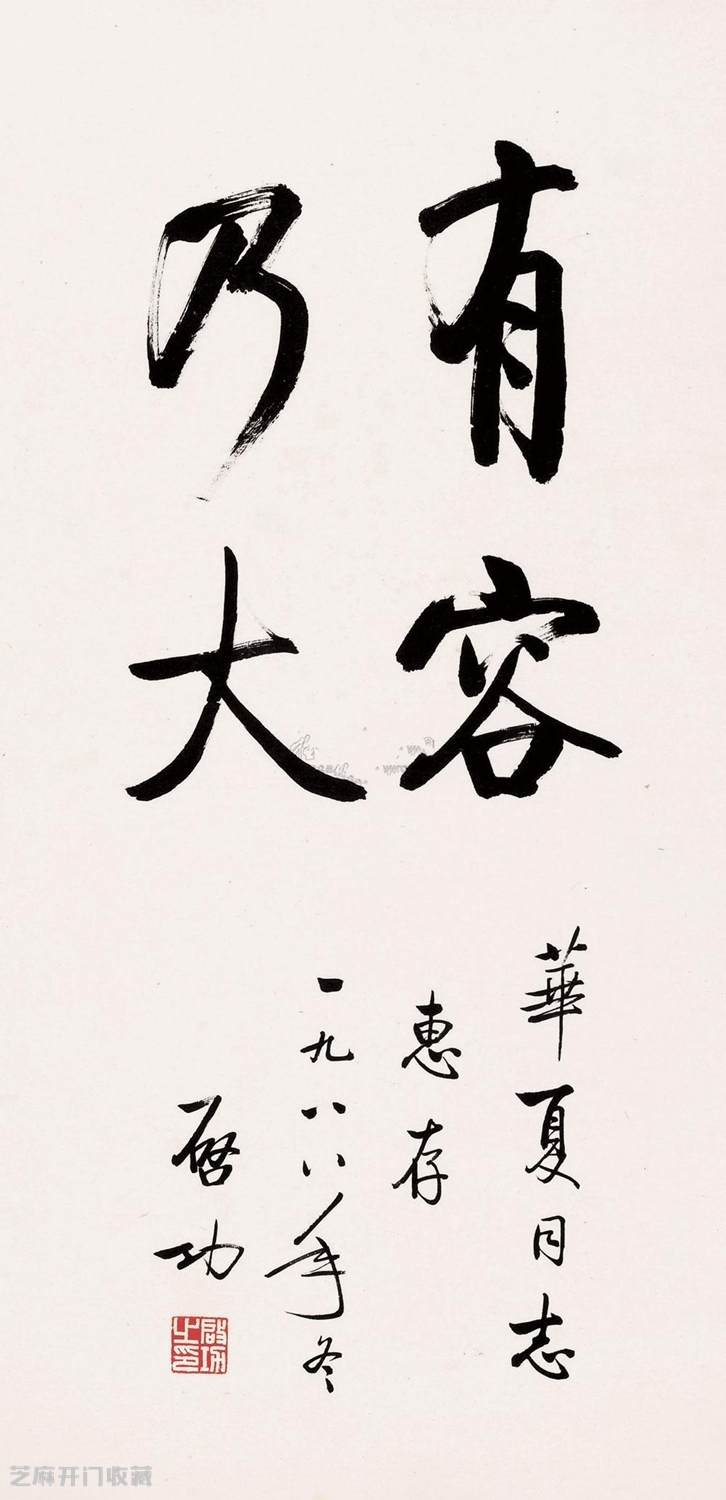 有容
乃大
華夏同志
惠存
一九八八年冬
啓功
啟功
之印
芝麻开门收藏